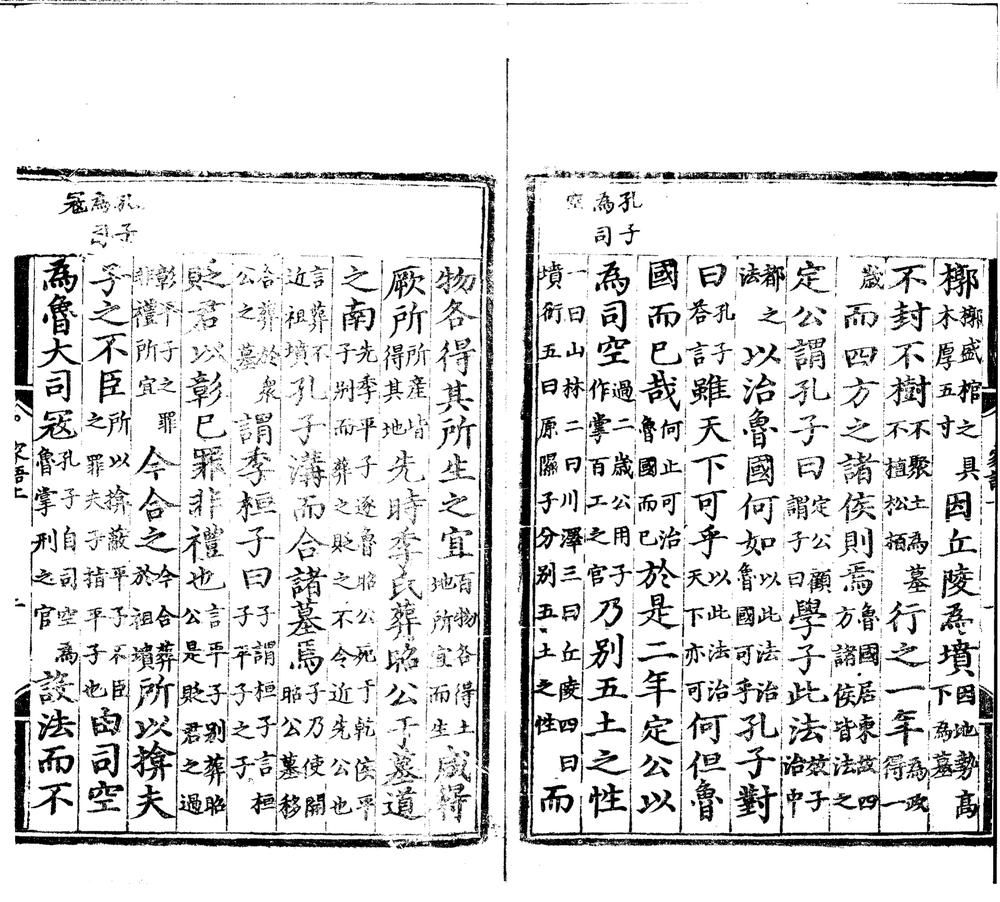 孔子
為司
空
槨槨盛棺之具木厚五寸因丘陵為墳因地勢高下為墓
不封不樹不聚土為墓不植松栢行之一年為政得一
歲而四方之諸侯則焉魯國居東故四方諸侯皆法之
定公謂孔子曰定公顧謂子曰學子此法效子治中
都之法以治魯國何如以此法治魯國可乎孔子對
曰孔子荅言雖天下可乎以此法治天下亦可何但魯
國而已哉何止可治魯國而已於是二年定公以
為司空過二歲公用子作掌百工之官乃别五土之性
一曰山林二曰川澤三曰丘陵四曰墳衍五曰原隰子分别五土之性而
孔子
為司
冦
物各得其所生之宜百物各得土地所宜而生咸得
厥所所産皆得其地先時季氏葬昭公于墓道
之南先季平子逐魯昭公死于乾侯平子别而葬之貶之不令近先公也
言葬不近祖墳孔子溝而合諸墓焉子乃使開昭公墓移
合葬於衆公之墓謂季桓子曰子謂桓子言桓子平子之子
貶君以彰已罪非禮也言平子别葬昭公是貶君之過
彰平子之罪非禮所宜今合之今合葬於祖墳所以揜夫
子之不臣所以揜蔽平子不臣之罪夫子指平子也由司空
為魯大司冦孔子自司空為魯掌刑之官設法而不
家語上